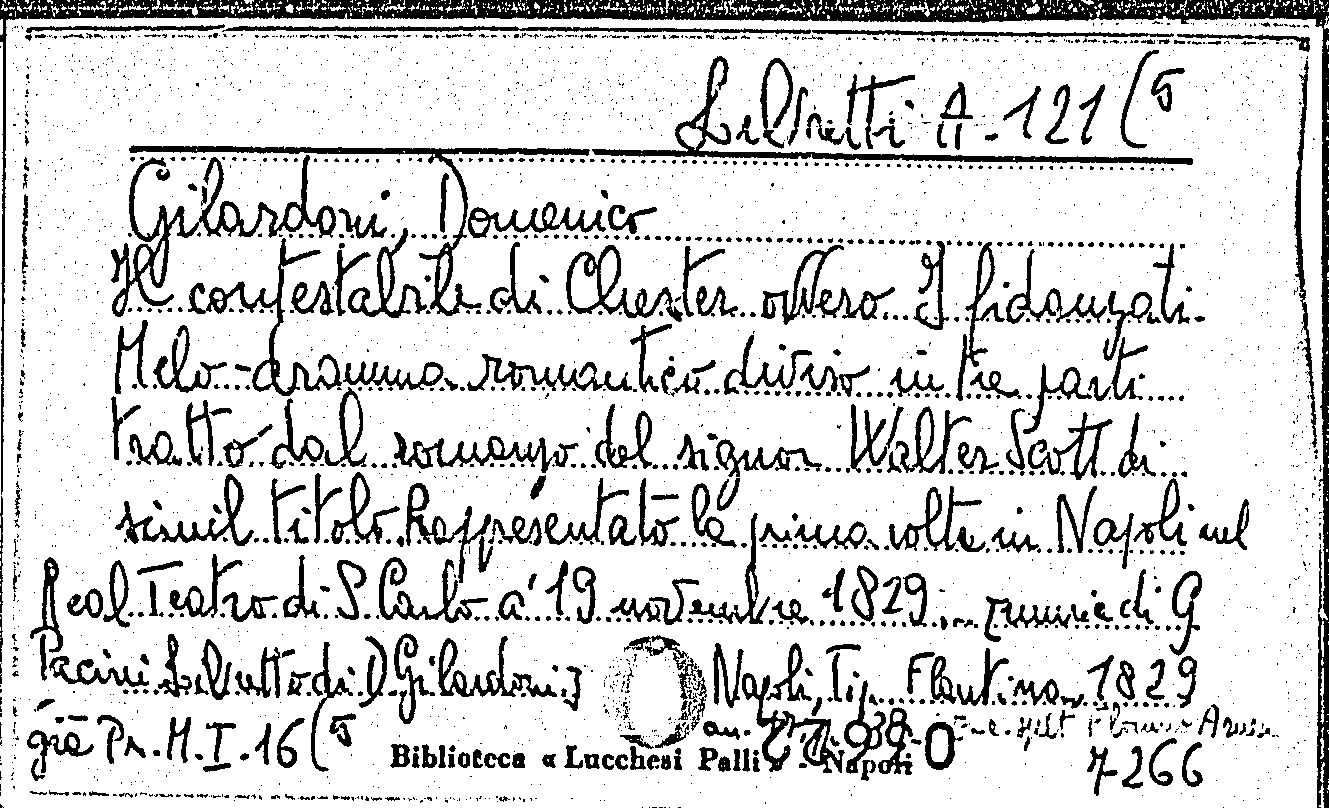 Libretti A-121 (5
Gilardoni, Domenico
Il contestabile di Chester ovvero I fidanzati.
Melo-dramma romantico diviso in tre parti
tratto dal romanzo del signor Walter Scott di
simil titolo. Rappresentato la prima volta in Napoli nel
Real Teatro di S. Carlo a' 19 novembre 1829... [musica di G
Pacini. Libretto di D Gilardoni.] Napoli, Tip. Flautina, 1829
già Pr. M. I. 16 (5
Biblioteca « Lucchesi Palli » - Napoli
7-266